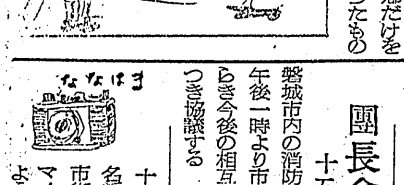 郷だけを
ったもの
團長会
十五
磐城市内の消防
午後一時より市
らき今後の相互
つき協議する
ななはま
十
名
市
マ
よ